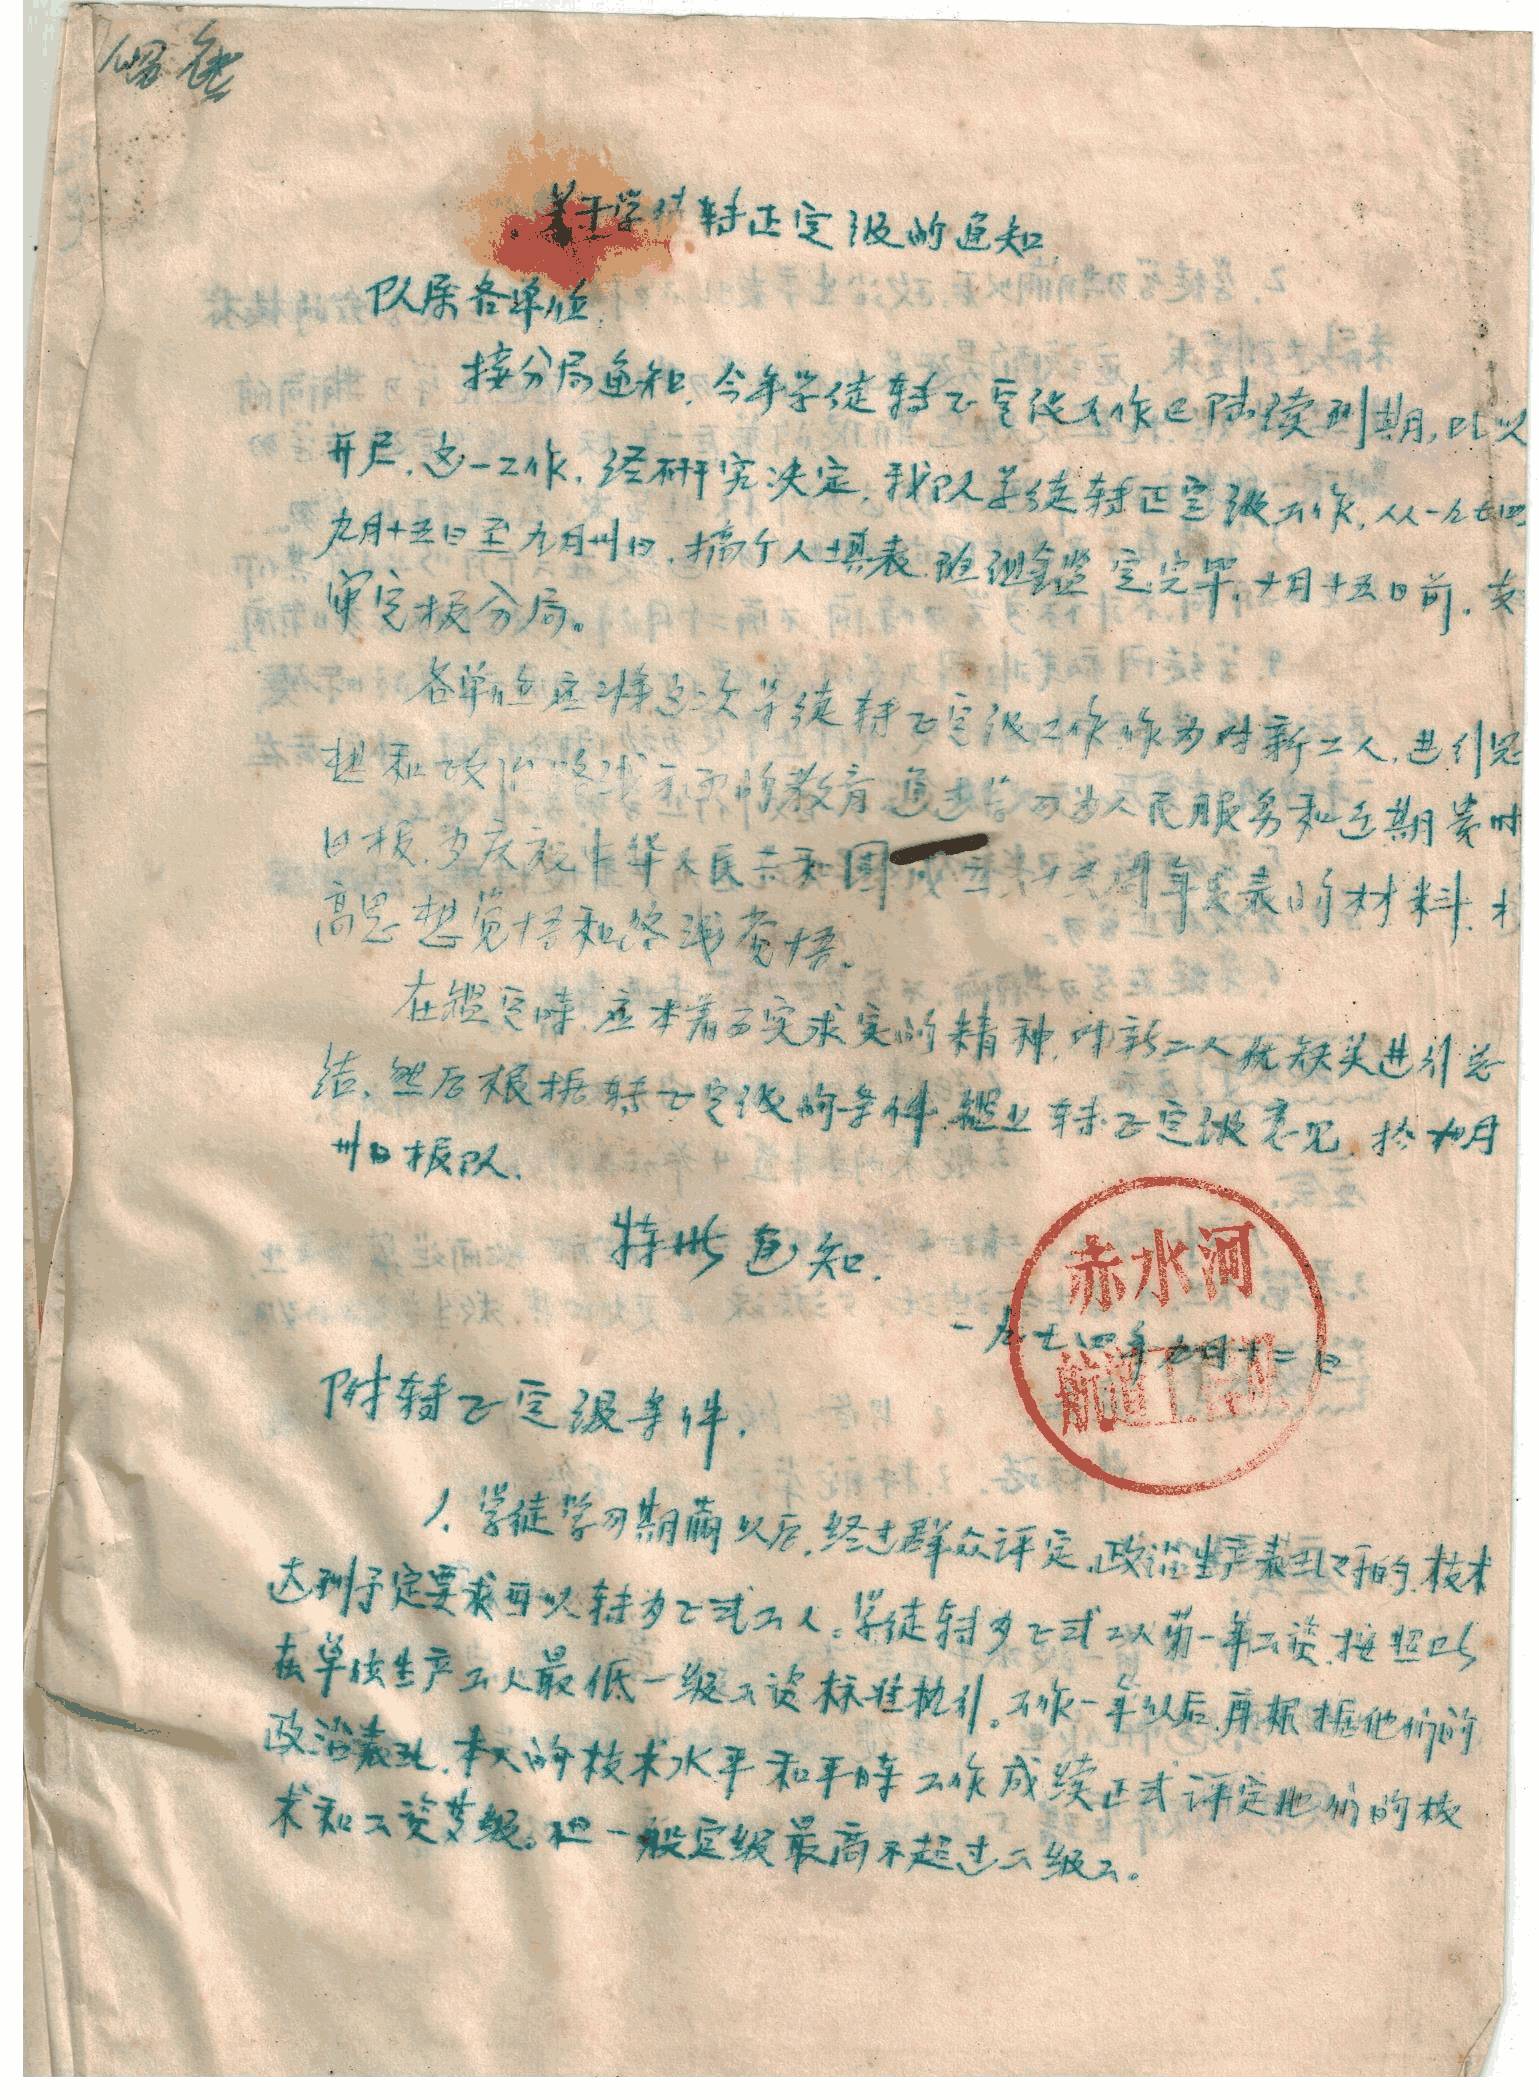 关于学徒转正定级的通知
队属各单位:
接分局通知,今年学徒转正定级工作已陆续到期,可以
开展,这一工作,经研究决定,我队学徒转正定级工作,从一九七四
九月十五日至九月卅日,搞个人填表,班组鉴定完毕,十月十五日前,支
审定报分局。
各单位应将这次学徒转正定级工作,作为对新工人,进行思
想和政治路线方面的教育,通过学习为人民服务和近期
日报,为庆祝中华人民共和国成立二十五周年发表的材料,提
高思想觉悟和路线觉悟。
在鉴定时,应本着实求实的精神,对新工人优缺点进行总
结,然后根据转正定级的条件,提出转正定级意见,于九月
卅日报队。
特此通知.
一九七四年九月十二日
赤水河
航道工程队
附转正定级条件.
1.学徒学习期满以后,经过群众评定,政治生产表现好的,技术
达到予定要求可以转为正式工人。学徒转为正式工人第一年工资,按照所
在单位生产工人最低一级工资标准执行。工作一年以后,再根据他们的
政治表现,本人的技术水平和平时工作成绩正式评定他们的技
术和工资等级。但一般定级最高不超过二级工。